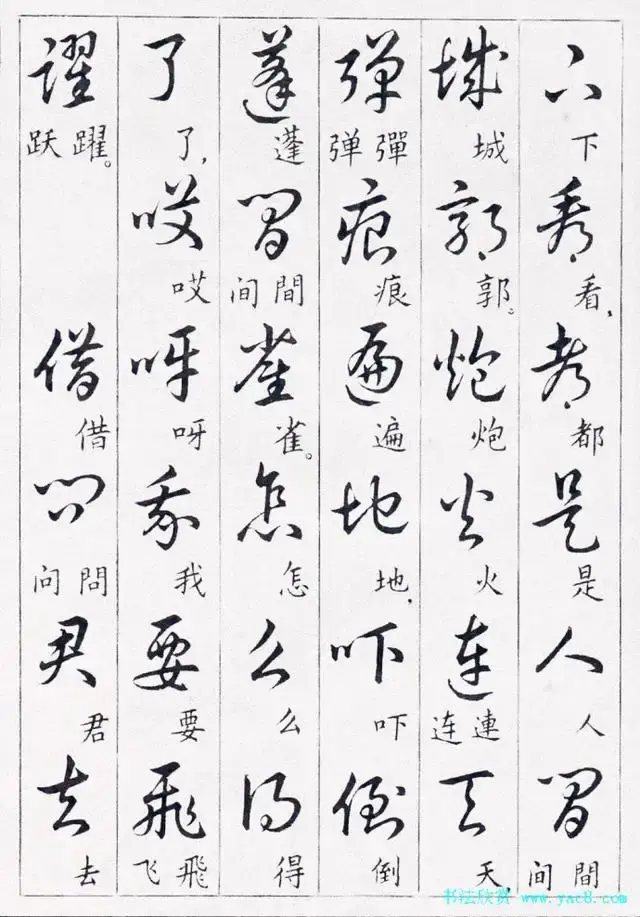 下看都是人間
下看，都是人间間
城郭炮火連天
城郭。炮火连連天，
彈痕遍地吓倒
弹彈痕遍地，吓倒
蓬間雀怎么得
蓬间間雀。怎么得
了哎呀我要飛
了，哎呀我要飞飛
躍 借問君去
跃躍。借问問君去
书法欣赏 www.yac8.com